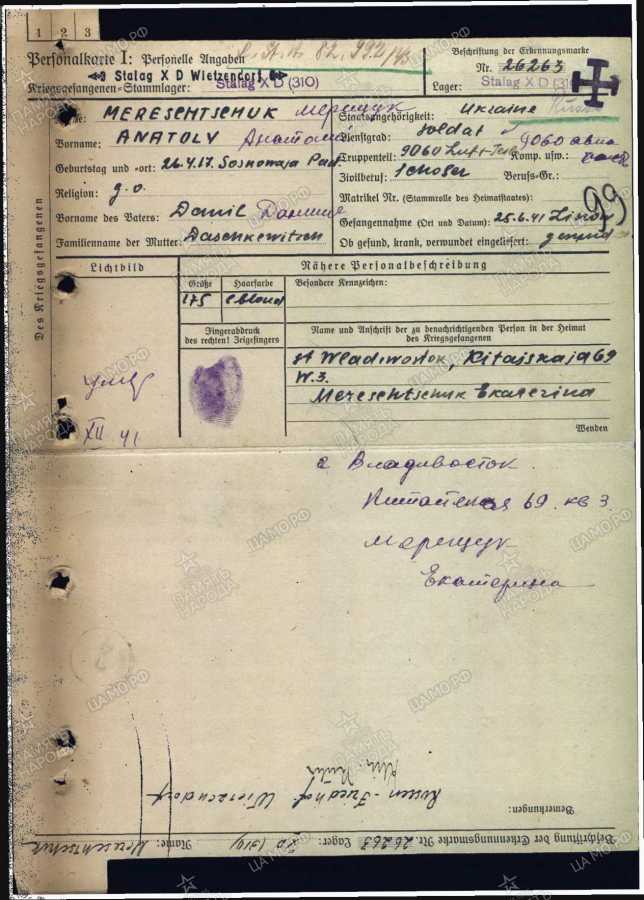 1 2 3
Personalkarte I: Personelle Angaben
Stalag X D Wietzendorf
Kriegsgefangenen-Stammlager: Stalag X D (310)
Beschriftung der Erkennungsmarke
Nr. 26263
Lager: Stalag X D (310)
Name: MERESCHTSCHUK Мерещук
Vorname: ANATOLY Анатолий
Geburtstag und -ort: 26.4.17. Sosnowaja Pad
Religion: g.o.
Vorname des Vaters: Danil Даниил
Familienname der Mutter: Daschkewitsch
Staatsangehörigkeit: Ukraine
Dienstgrad: Soldat
Truppenteil: 9060 Komp. usw.:
Zivilberuf: Berufs-Gr.:
Matrikel Nr. (Stammrolle des Heimatstaates)
99
Gefangennahme (Ort und Datum): 25.6.41
Ob gesund, krank, verwundet eingeliefert: gesund
Des Kriegsgefangenen
Lichtbild
Nähere Personalbeschreibung
Größe Haarfarbe Besondere Kennzeichen:
175 blond
Fingerabdruck
des rechten! Zeigefingers
Name und Anschrift der zu benachrichtigenden Person in der Heimat
des Kriegsgefangenen
st Wladiwostok, Kitajskaja 69
W.3.
Mereschtschuk Ekaterina
Wenden
XII 41
г Владивосток
Китайская 69. кв 3.
Мерещук
Екатерина
Bemerkungen:
Russen-Friedhof Wietzendorf
Beschriftung der Erkennungsmarke Nr. 26263 Lager: XD (310) Name: Mereschtschuk
ПАМЯТЬ НАРОДА
ЦАМО РФ